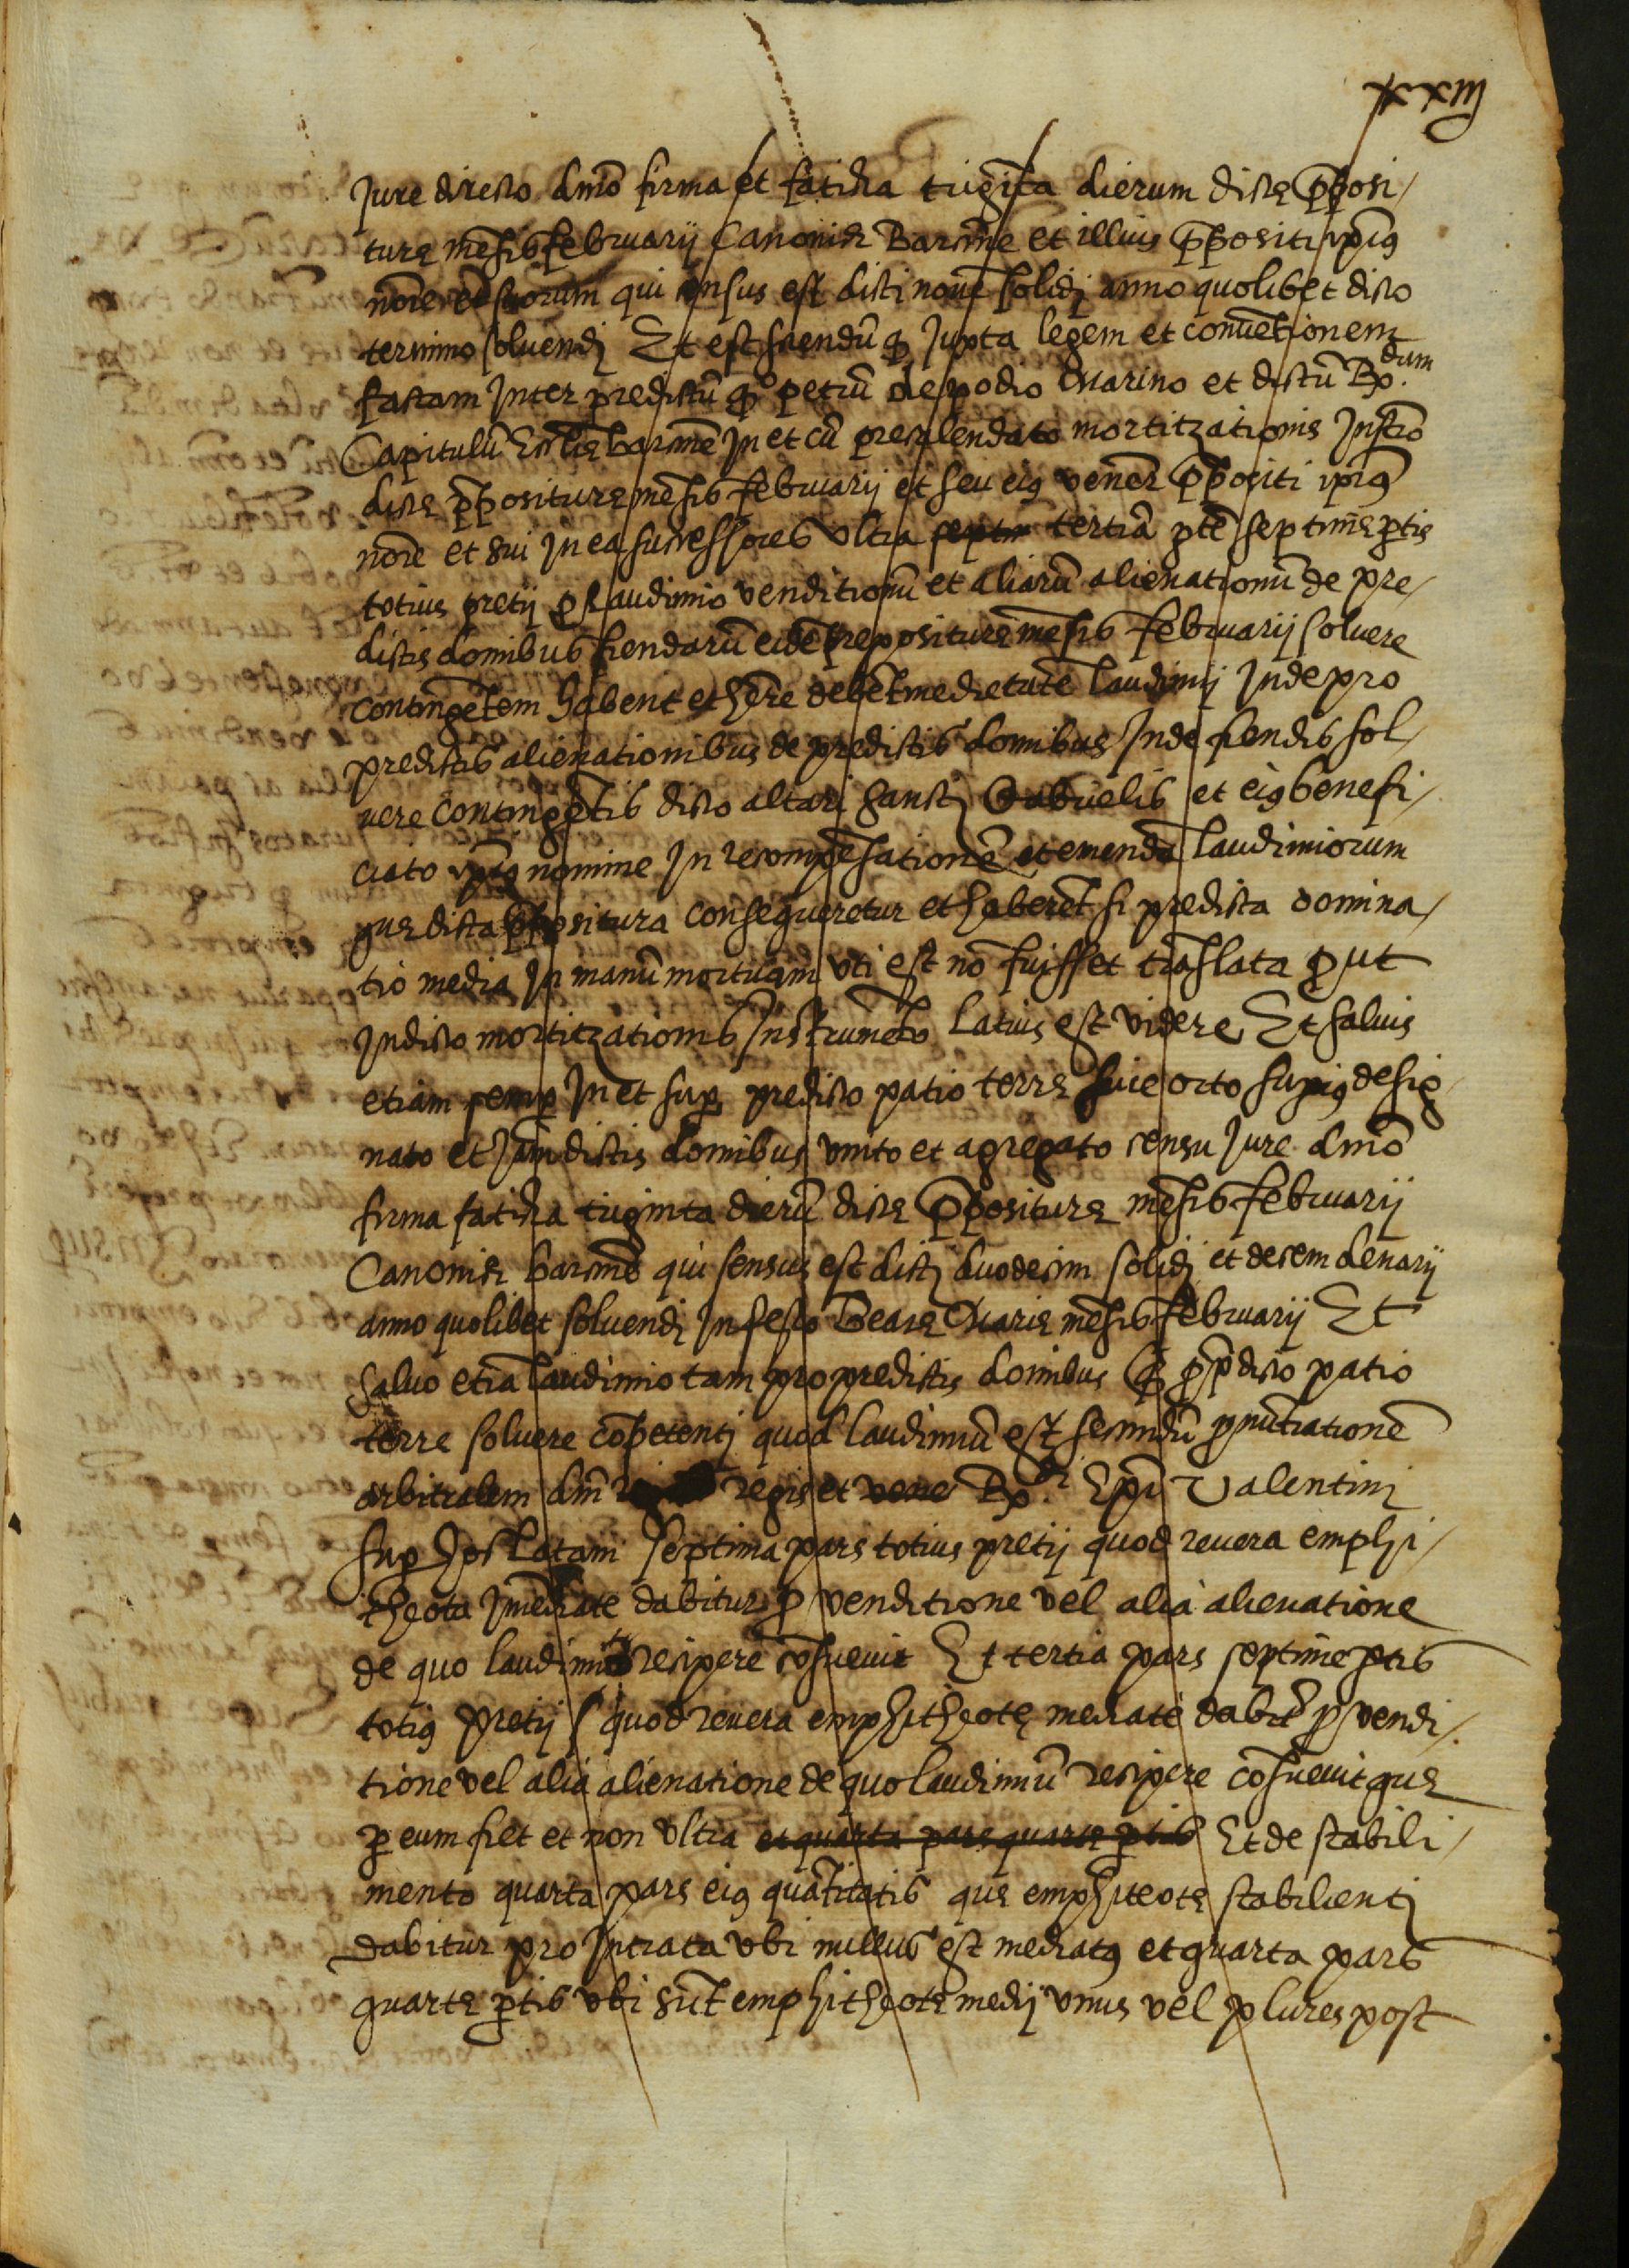 xxiij
Jure directo dmo firma et fatica trigīta dierum dicte pposi/
ture mēsis february Canonice Barcīne et illius ppositi ipiꝰ
nore et suorum qui census est dicti noūe solidj anno quolibet dicto
termino soluendj Et est sciendū ꝙ Juxta legem et conuētionem
factam Inter predictū qº petrū de podio Marino et dictū Rx.dum
Capitulū Ecclie barcine In et cū precalendato mortitzationis Instro
dicte ppositure mēsis february et seu eiꝰ vener ppositi ipiꝰ
nore et sui In ea successores vltra septi tertiā ptē septime ptis
totius pretij p laudimio venditionū et aliarū alienationū de pre/
dictis domibus fiendarū eidē prepositure mēsis february soluere
contingētem habent et hēre debēt medietatē laudimij Inde pro
predictis alienationibus de predictis domibus Inde fiendis sol/
uere contingētis dicto altari sanctj Gabrielis et eiꝰ benefi/
ciato ipiꝰ nomine In recompēsationē et emendā laudimiorum
que dicta ppositura consequeretur et haberet si predicta domina/
tio media In manū mortuam vti est nō fuisset trāslata put
In dicto mortitzationis Instrumēto latius est videre Et saluis
etiam semp In et sup predicto patio terre siue orto supiꝰ desig/
nato et Jam dictis domibus vnito et agregato censu Jure dmō
firma fatica triginta dierū dicte ppositure mēsis february
Canonice barcine qui sensus est dictj duodecim solidj et decem denarij
anno quolibet soluendj In festo Beate Marie mēsis february Et
saluo etiā laudimio tam pro predictis domibus ꝙ p pdicto patio
terre soluere cōpetentj quod laudimiū est secundū pnūtiationē
arbitralem dmī regis et vene Rx.di Epī Valentinj
sup hoc latam septima pars totius pretij quod reuera emphi/
theota Imediate dabitur p venditione vel alia alienatione
de quo laudimiū recipere cōsueuit Et tertia pars septime ptis
totiꝰ pretij quod reuera emphitheote mediate dabit p vendi/
tione vel alia alienatione de quo laudimiū recipere cōsueuit que
p eum fiet et non vltra et quarta pars quarte ptis Et de stabili/
mento quarta pars eiꝰ quātitatis que emphiteote stabilientj
dabitur pro Intrata vbi nullus est mediatꝰ et quarta pars
quarte ptis vbi sūt emphitheote medij vnus vel plures post